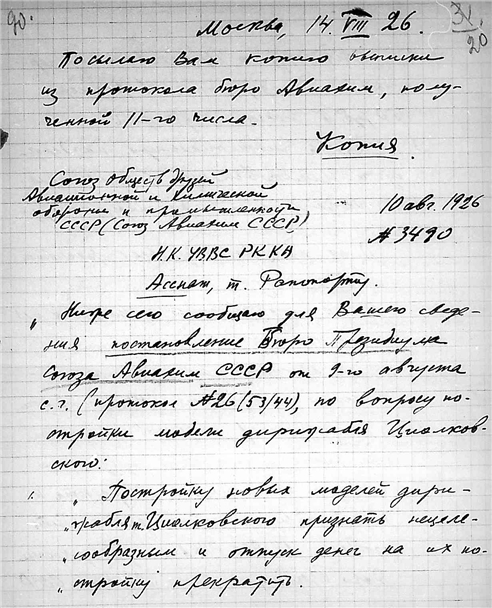 90.
Москва, 14.VIII 26.
31
20
Посылаю Вам копию выписки
из протокола бюро Авиахим, полу-
ченной 11-го числа.
Копия.
Союз обществ друзей
Авиационной и Химической
обороны и промышленности
СССР (Союз Авиахим СССР)
10 авг. 1926
№ 3490
Н.К. УВВС РККА
т. Рапопорту.
„Ниже сего сообщаю для Вашего сведе-
ния постановление Бюро Президиума
Союза Авиахим СССР от 9-го августа
с.г. (протокол №26(53/44), по вопросу по-
стройки модели дирижабля Циолков-
ского:
1. „Постройку новых моделей дири-
„жабля т. Циолковского признать нецеле-
„сообразным и отпуск денег на их по-
„стройку прекратить.